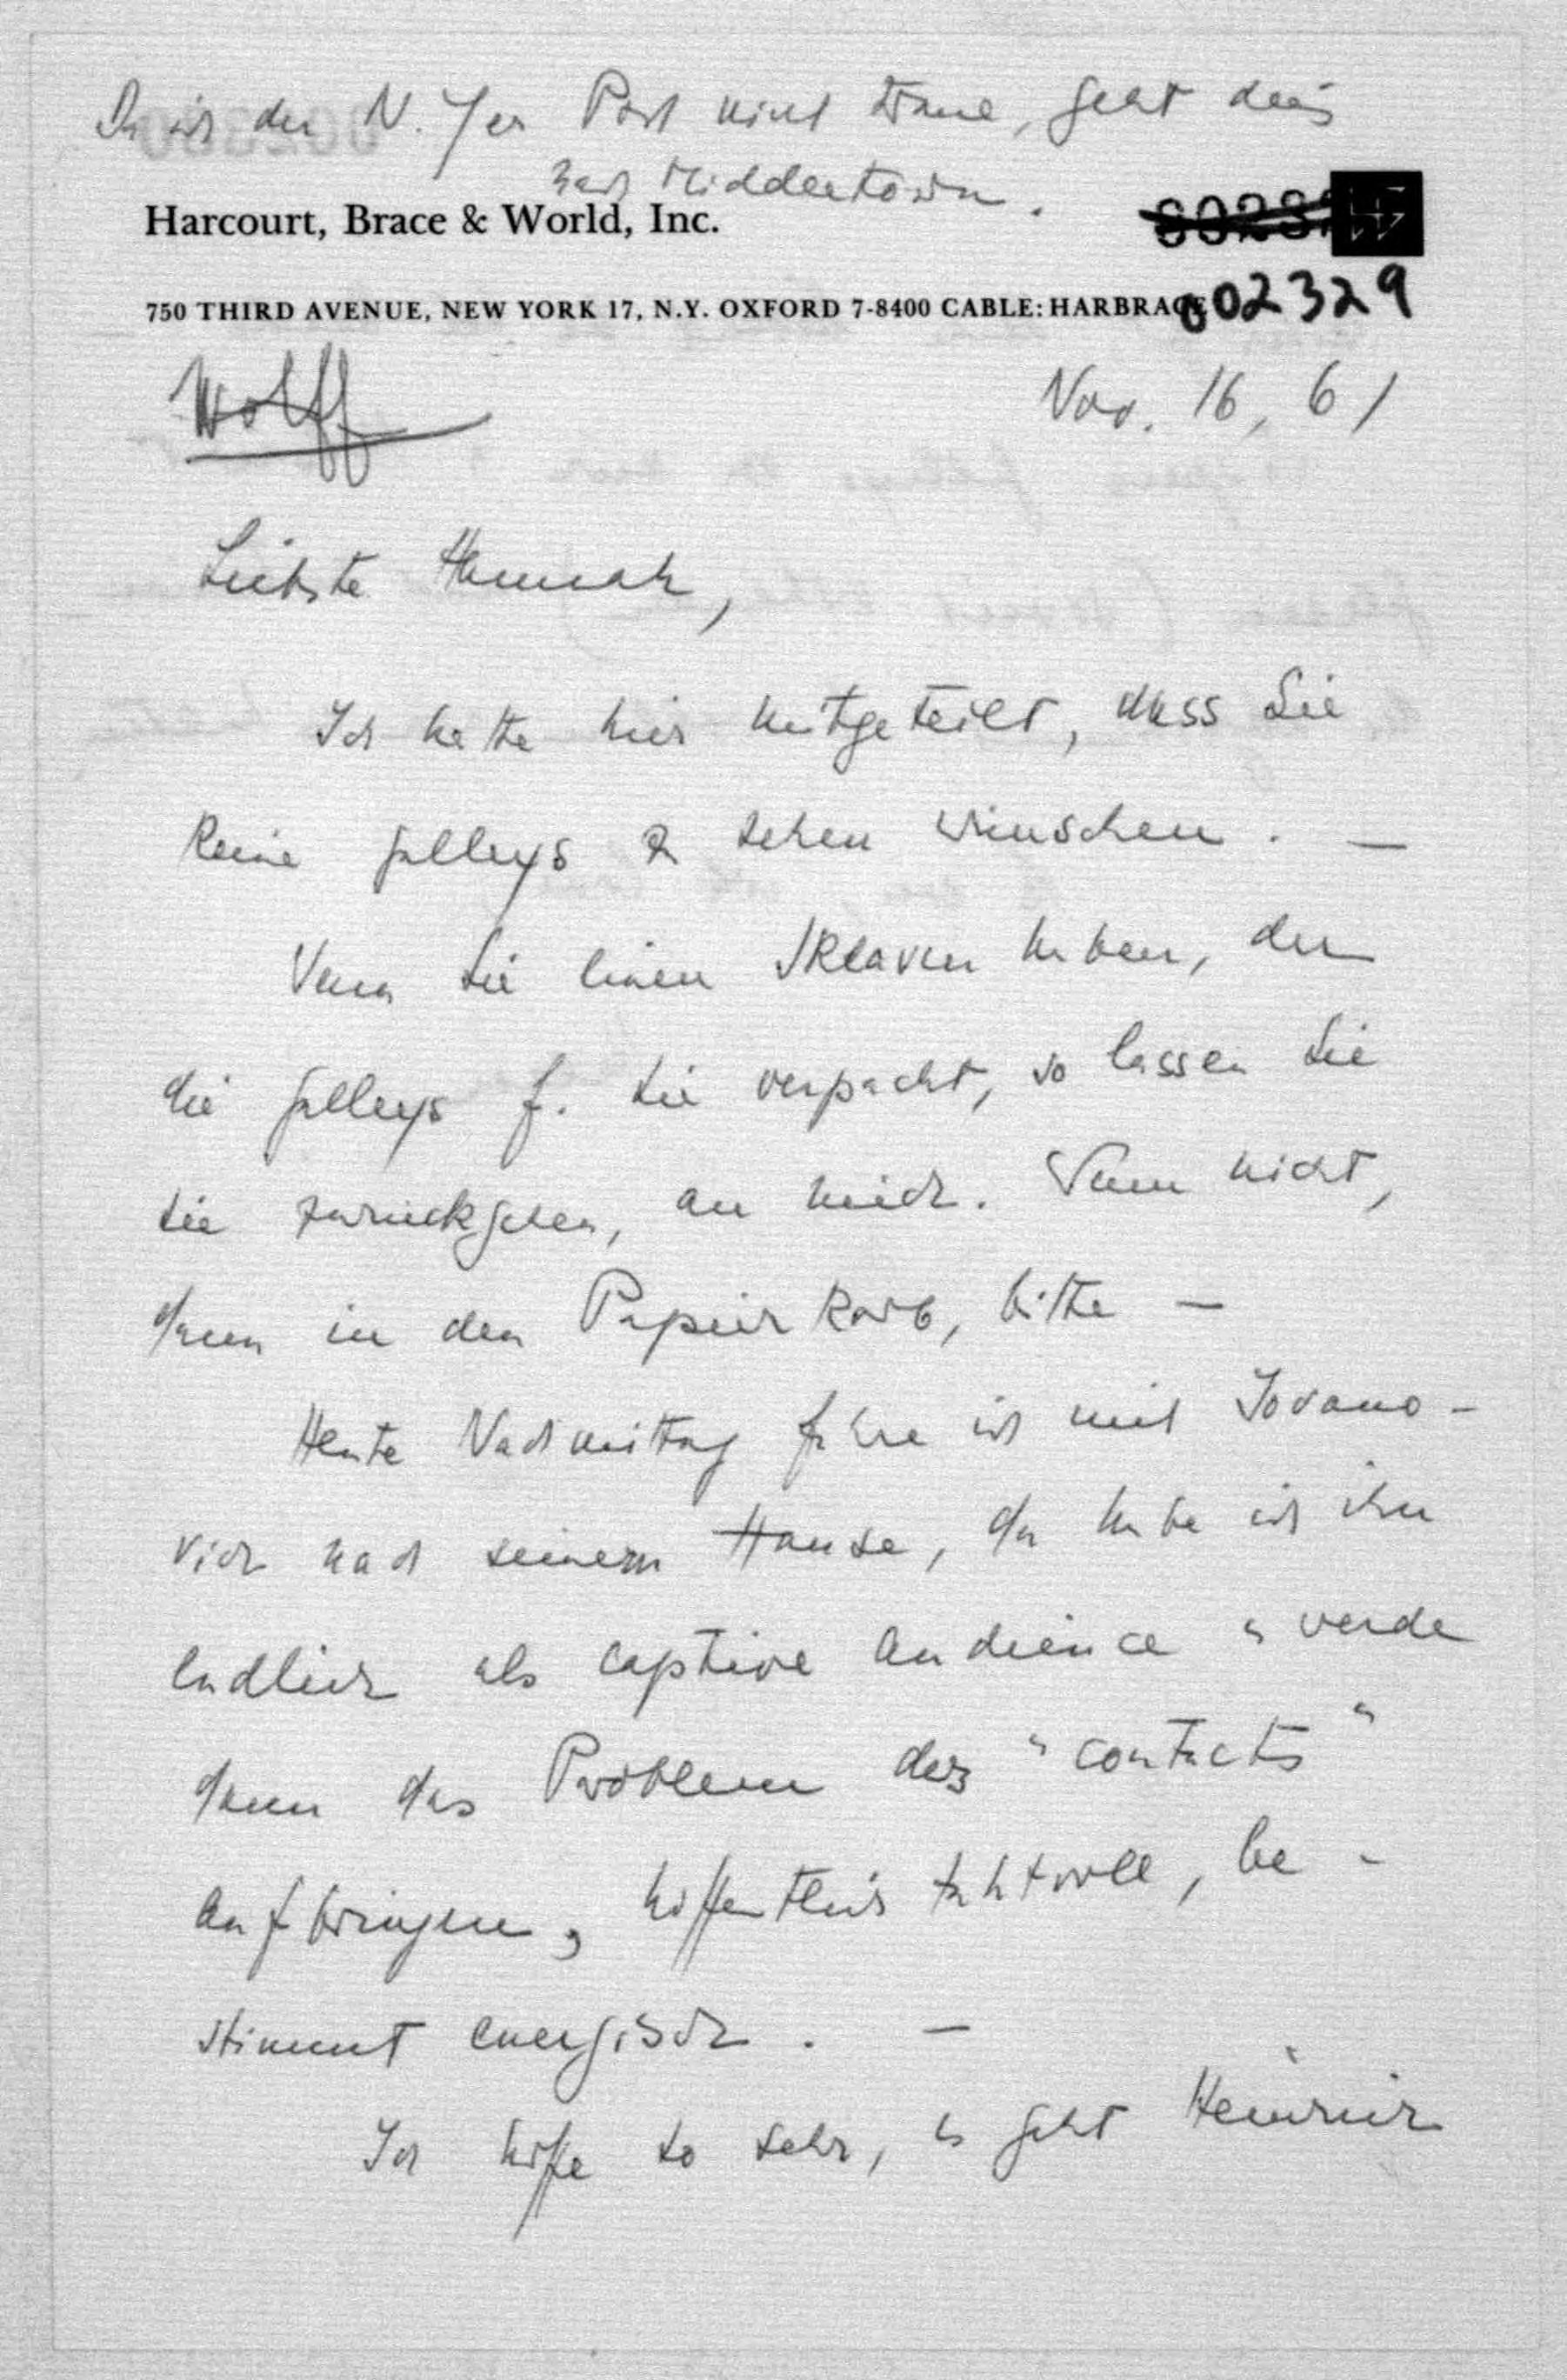 Da ich der N. Yer Post nicht traue, geht dies
nach Middletown.
Harcourt, Brace & World, Inc.
750 THIRD AVENUE, NEW YORK 17, N.Y. OXFORD 7-8400 CABLE: HARBRACE
002329
Wolff
Nov. 16, 61
Liebste Hannah,
Ich hatte hier mitgeteilt, dass Sie
keine galleys zu sehen wünschen. —
Wenn Sie einen Sklaven haben, der
die galleys f. Sie verpackt, so lassen Sie
sie zurückgehen, an mich. Wenn nicht,
dann in den Papierkorb, bitte —
Heute Nachmittag fahre ich mit Jovano-
vich nach seinem Hause, da habe ich ihn
endlich als captive audience u werde
dann das Problem des "contacts"
aufbringen, hoffentlich taktvoll, be-
stimmt energisch. —
Ich hoffe so sehr, es geht Heinrich